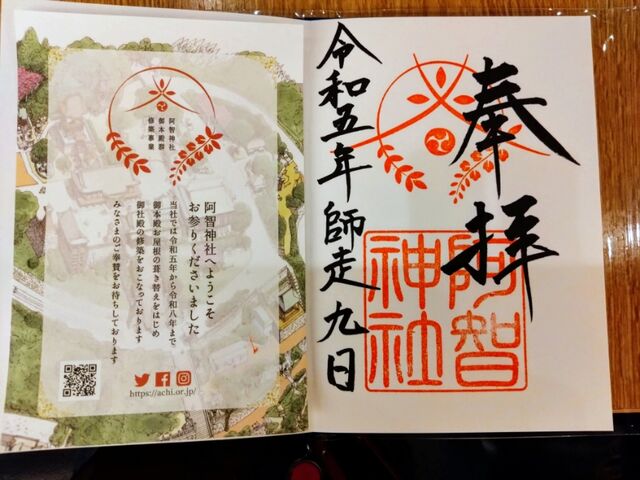 奉拝
阿智
神社
令和五年師走九日
阿智神社
御本殿群
修築事業
阿智神社へようこそ
お参りくださいました
当社では令和五年から令和八年まで
御本殿お屋根の葺き替えをはじめ
御社殿の修築をおこなっております
みなさまのご奉賛をお待ちしております
https://achi.or.jp/